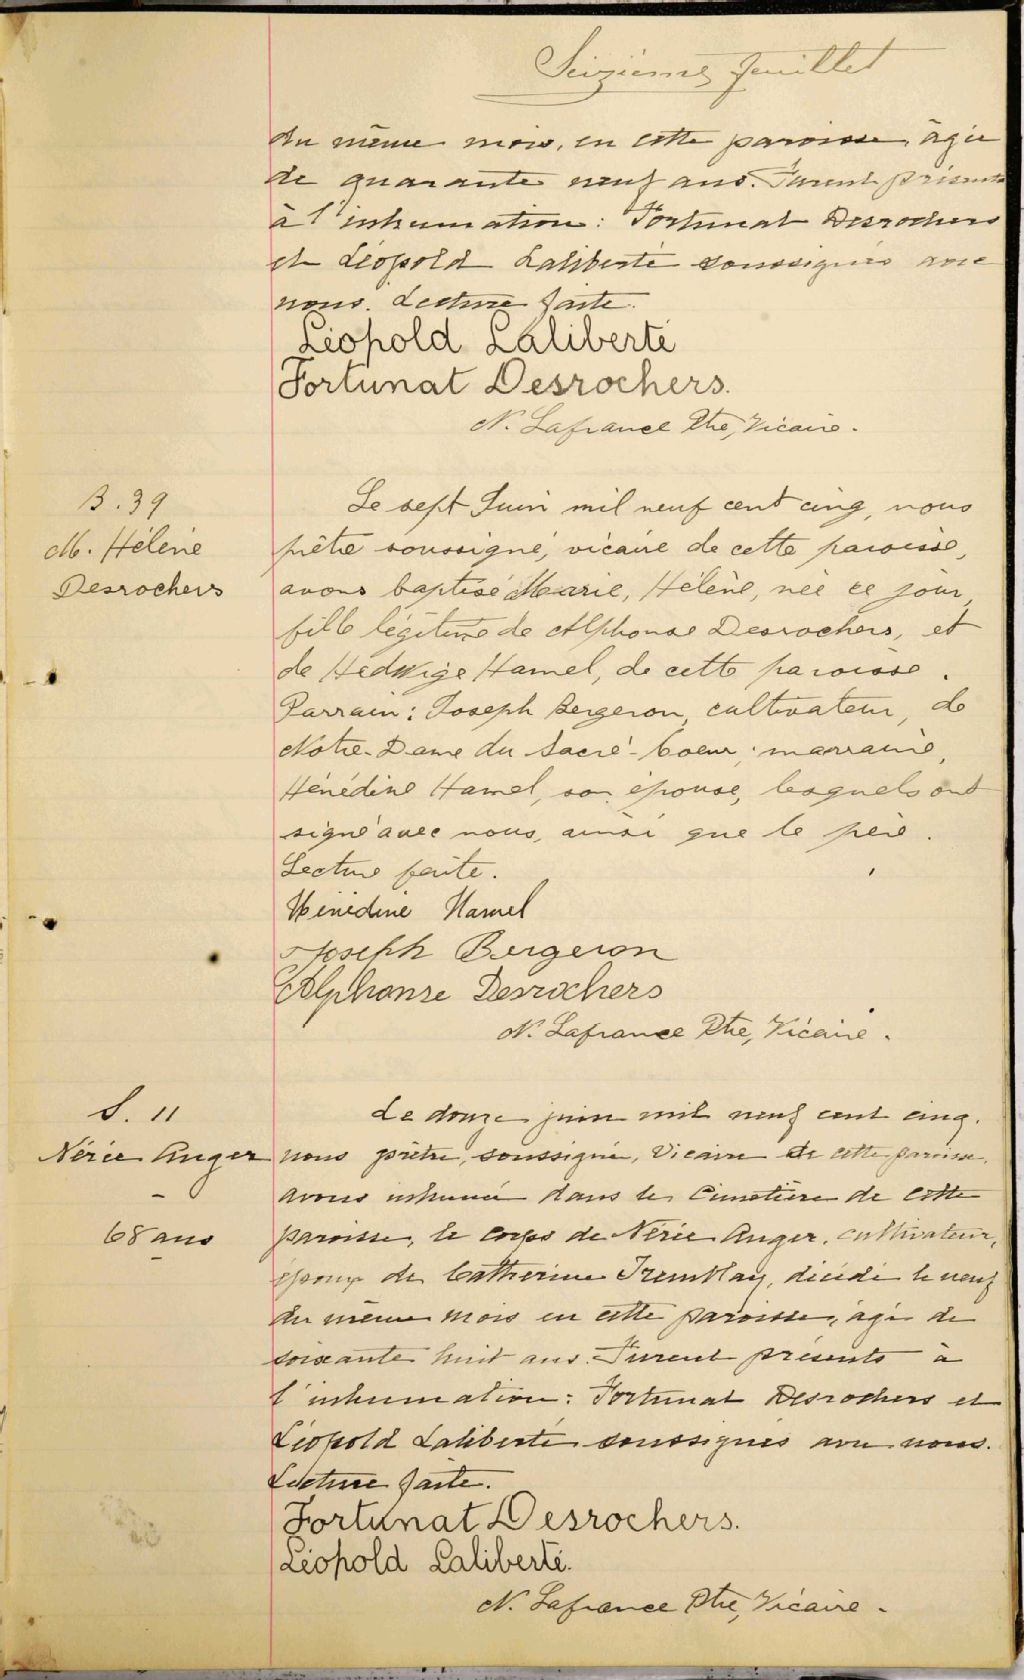 Seizième feuillet
du même mois, en cette paroisse, âgée
de quarante neuf ans. Furent présents
à l'inhumation: Fortunat Desrochers
et Léopold Laliberté soussignés avec
nous. Lecture faite.
Léopold Laliberté
Fortunat Desrochers.
N. Lafrance Ptre, Vicaire.
B. 39
M. Hélène
Desrochers
Le sept Juin mil neuf cent cinq, nous
prêtre soussigné, vicaire de cette paroisse,
avons baptisé Marie, Hélène, née ce jour,
fille légitime de Alphonse Desrochers, et
de Hedwige Hamel, de cette paroisse.
Parrain: Joseph Bergeron, cultivateur, de
Notre-Dame du Sacré-Coeur; marraine,
Hénédine Hamel, son épouse, lesquels ont
signé avec nous, ainsi que le père.
Lecture faite.
Hénédine Hamel
Joseph Bergeron
Alphonse Desrochers
N. Lafrance Ptre, Vicaire.
S. 11
Nérée Anger
68 ans
Le douze juin mil neuf cent cinq.
nous prêtre, soussigné, Vicaire de cette paroisse.
avons inhumé dans le Cimetière de cette
paroisse, le corps de Nérée Anger, cultivateur,
époux de Catherine Tremblay, décédé le neuf
du même mois en cette paroisse, âgé de
soixante huit ans. Furent présents à
l'inhumation: Fortunat Desrochers et
Léopold Laliberté soussignés avec nous.
Lecture faite.
Fortunat Desrochers.
Léopold Laliberté.
N. Lafrance Ptre, Vicaire.